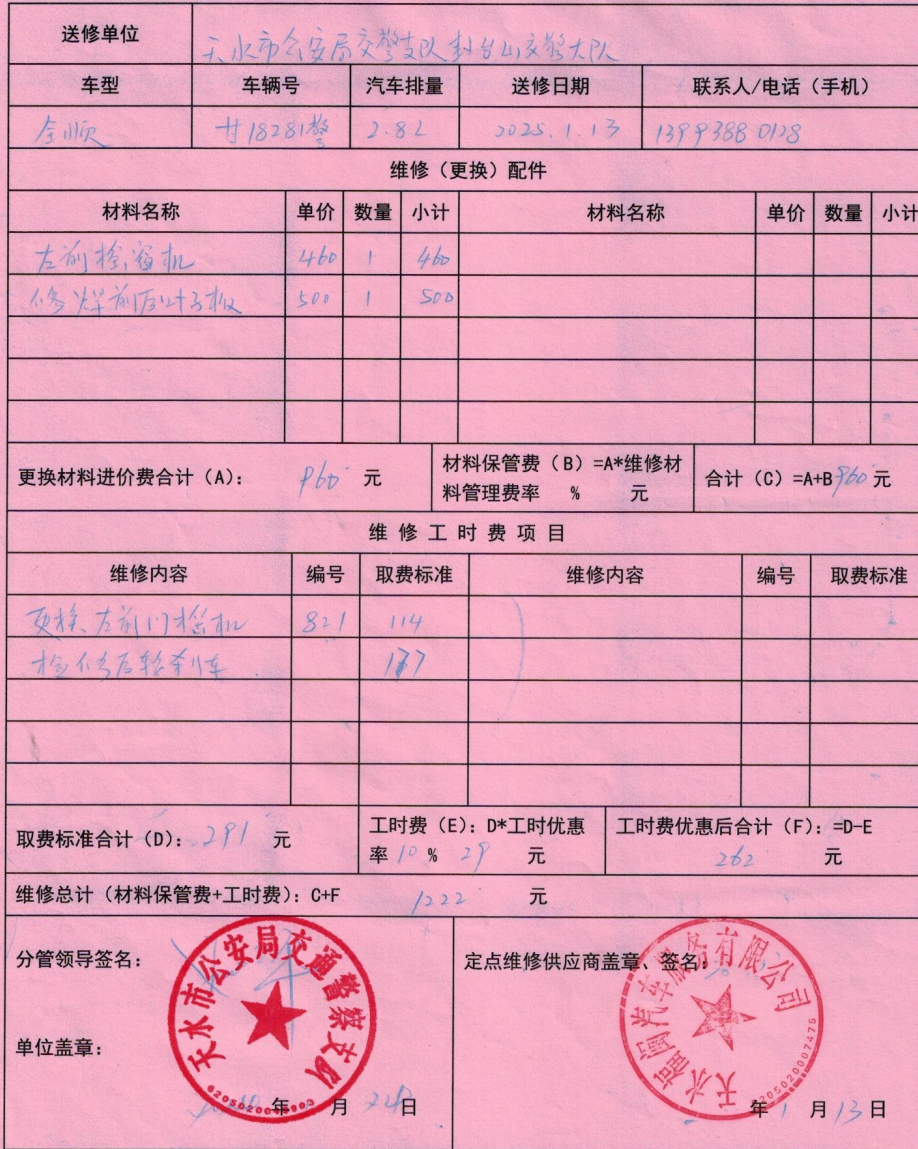 送修单位 天水市公安局交警支队麦积山交警大队
车型 车辆号 汽车排量 送修日期 联系人/电话（手机）
全顺 甘18281警 2.8L 2025.1.13 13993880128
维修（更换）配件
材料名称 单价 数量 小计 材料名称 单价 数量 小计
左前 460 1 460
修焊前后叶子板 500 1 500
更换材料进价费合计（A）： 960 元 材料保管费（B）=A*维修材料管理费率 % 元 合计（C）=A+B 960 元
维修工时费项目
维修内容 编号 取费标准 维修内容 编号 取费标准
更换左前门 821 114
检修后轮刹车 177
取费标准合计（D）：291 元 工时费（E）：D*工时优惠率10% 29 元 工时费优惠后合计（F）：=D-E 262 元
维修总计（材料保管费+工时费）：C+F 1222 元
分管领导签名： 定点维修供应商盖章、签名：
天水市公安局交通警察支队
天水福闽汽车服务有限公司
6205020007475
单位盖章：
年 月 日 年 1 月 13 日